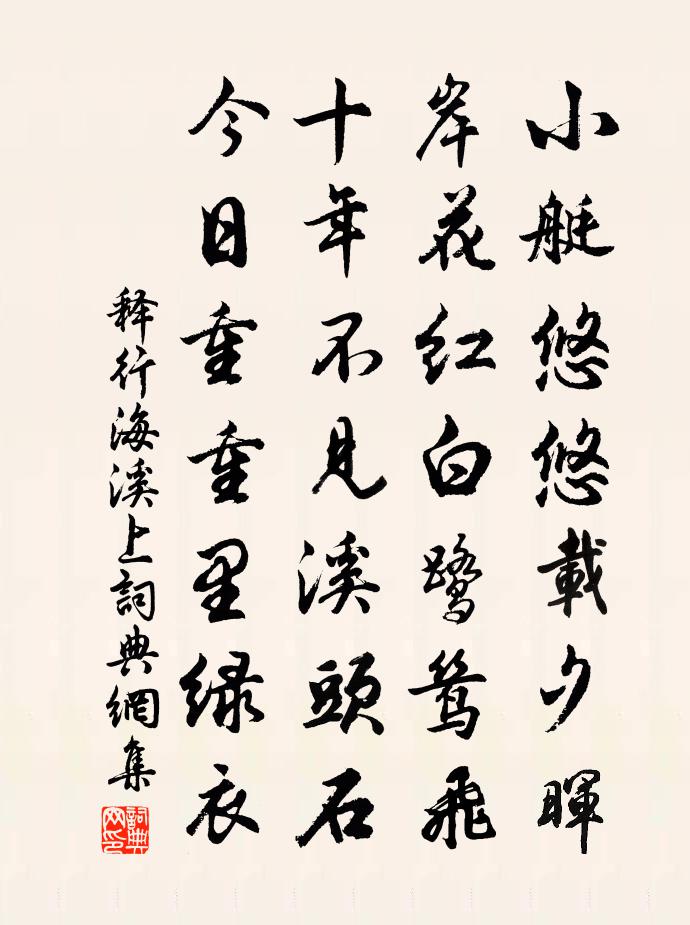 小艇悠悠載夕暉
岸花紅白鷺鷥飛
十年不見溪頭石
今日重重里緑衣
释行海溪上詞典網集
詞典网印